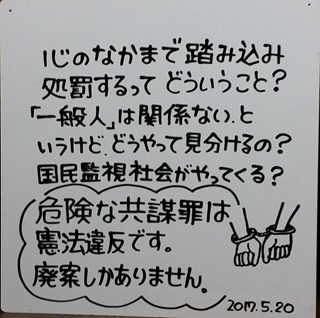 心のなかまで踏み込み
処罰するって どういうこと?
「一般人」は関係ない、と
いうけど、どうやって見分けるの?
国民監視社会がやってくる?
危険な共謀罪は
憲法違反です。
廃案しかありません。
2017.5.20